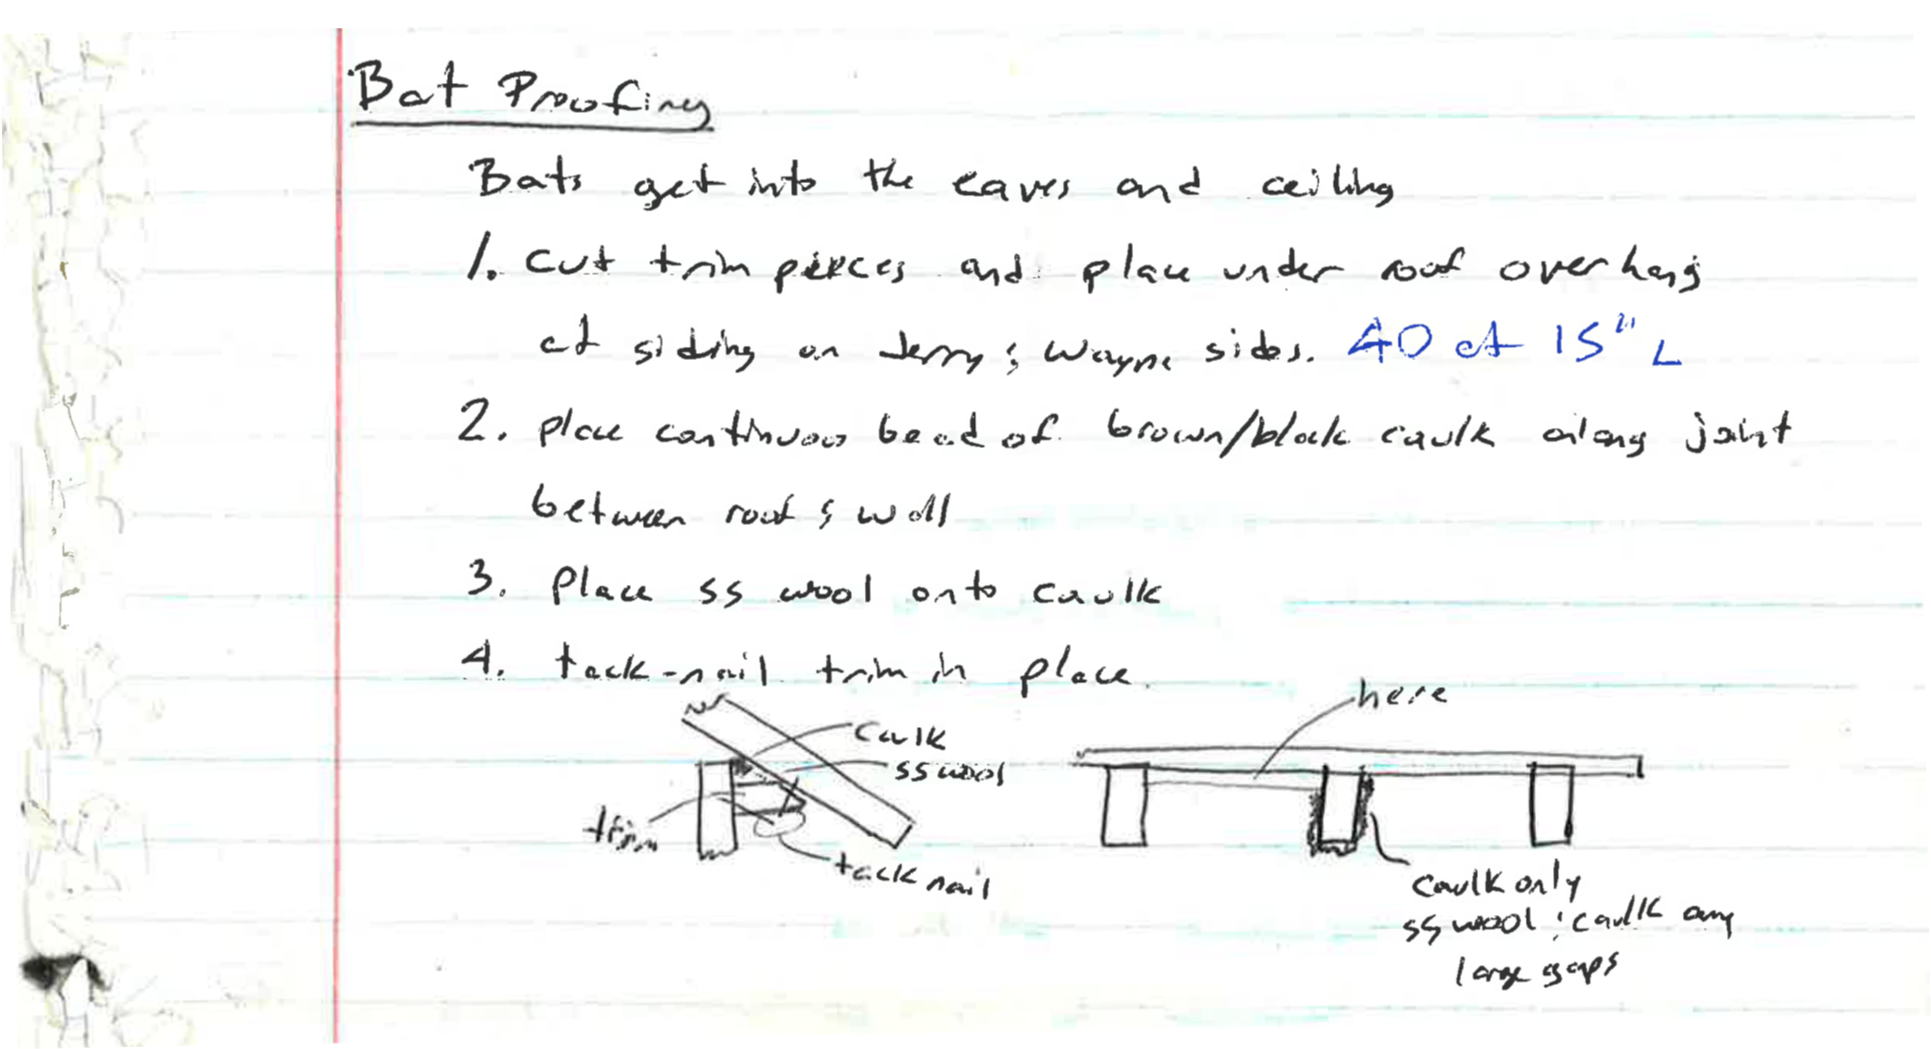 Bat Proofing
Bats get into the eaves and ceiling
1. Cut trim pieces and place under roof overhang
at siding on Jerry & Wayne sides. 40 at 15" L
2. place continuous bead of brown/black caulk along joint
between roof & wall
3. Place ss wool onto caulk
4. tack-nail trim in place.
here
caulk
ss wool
trim
tack nail
caulk only
ss wool & caulk any
large gaps